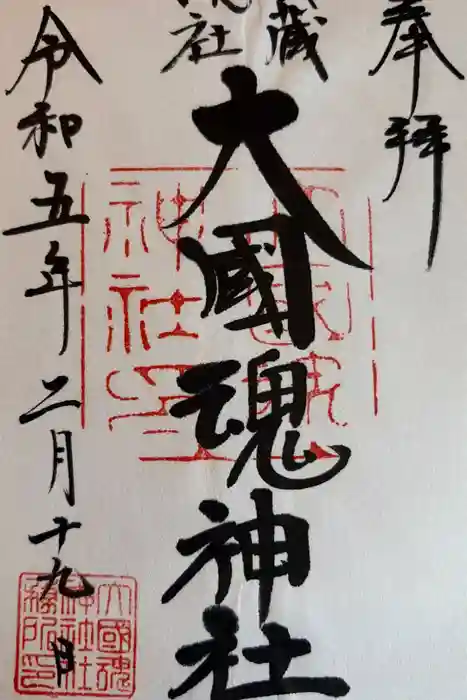 奉拝
蔵
社
大國魂神社
令和五年二月十九日
神社印
大國魂
神社社
務所印